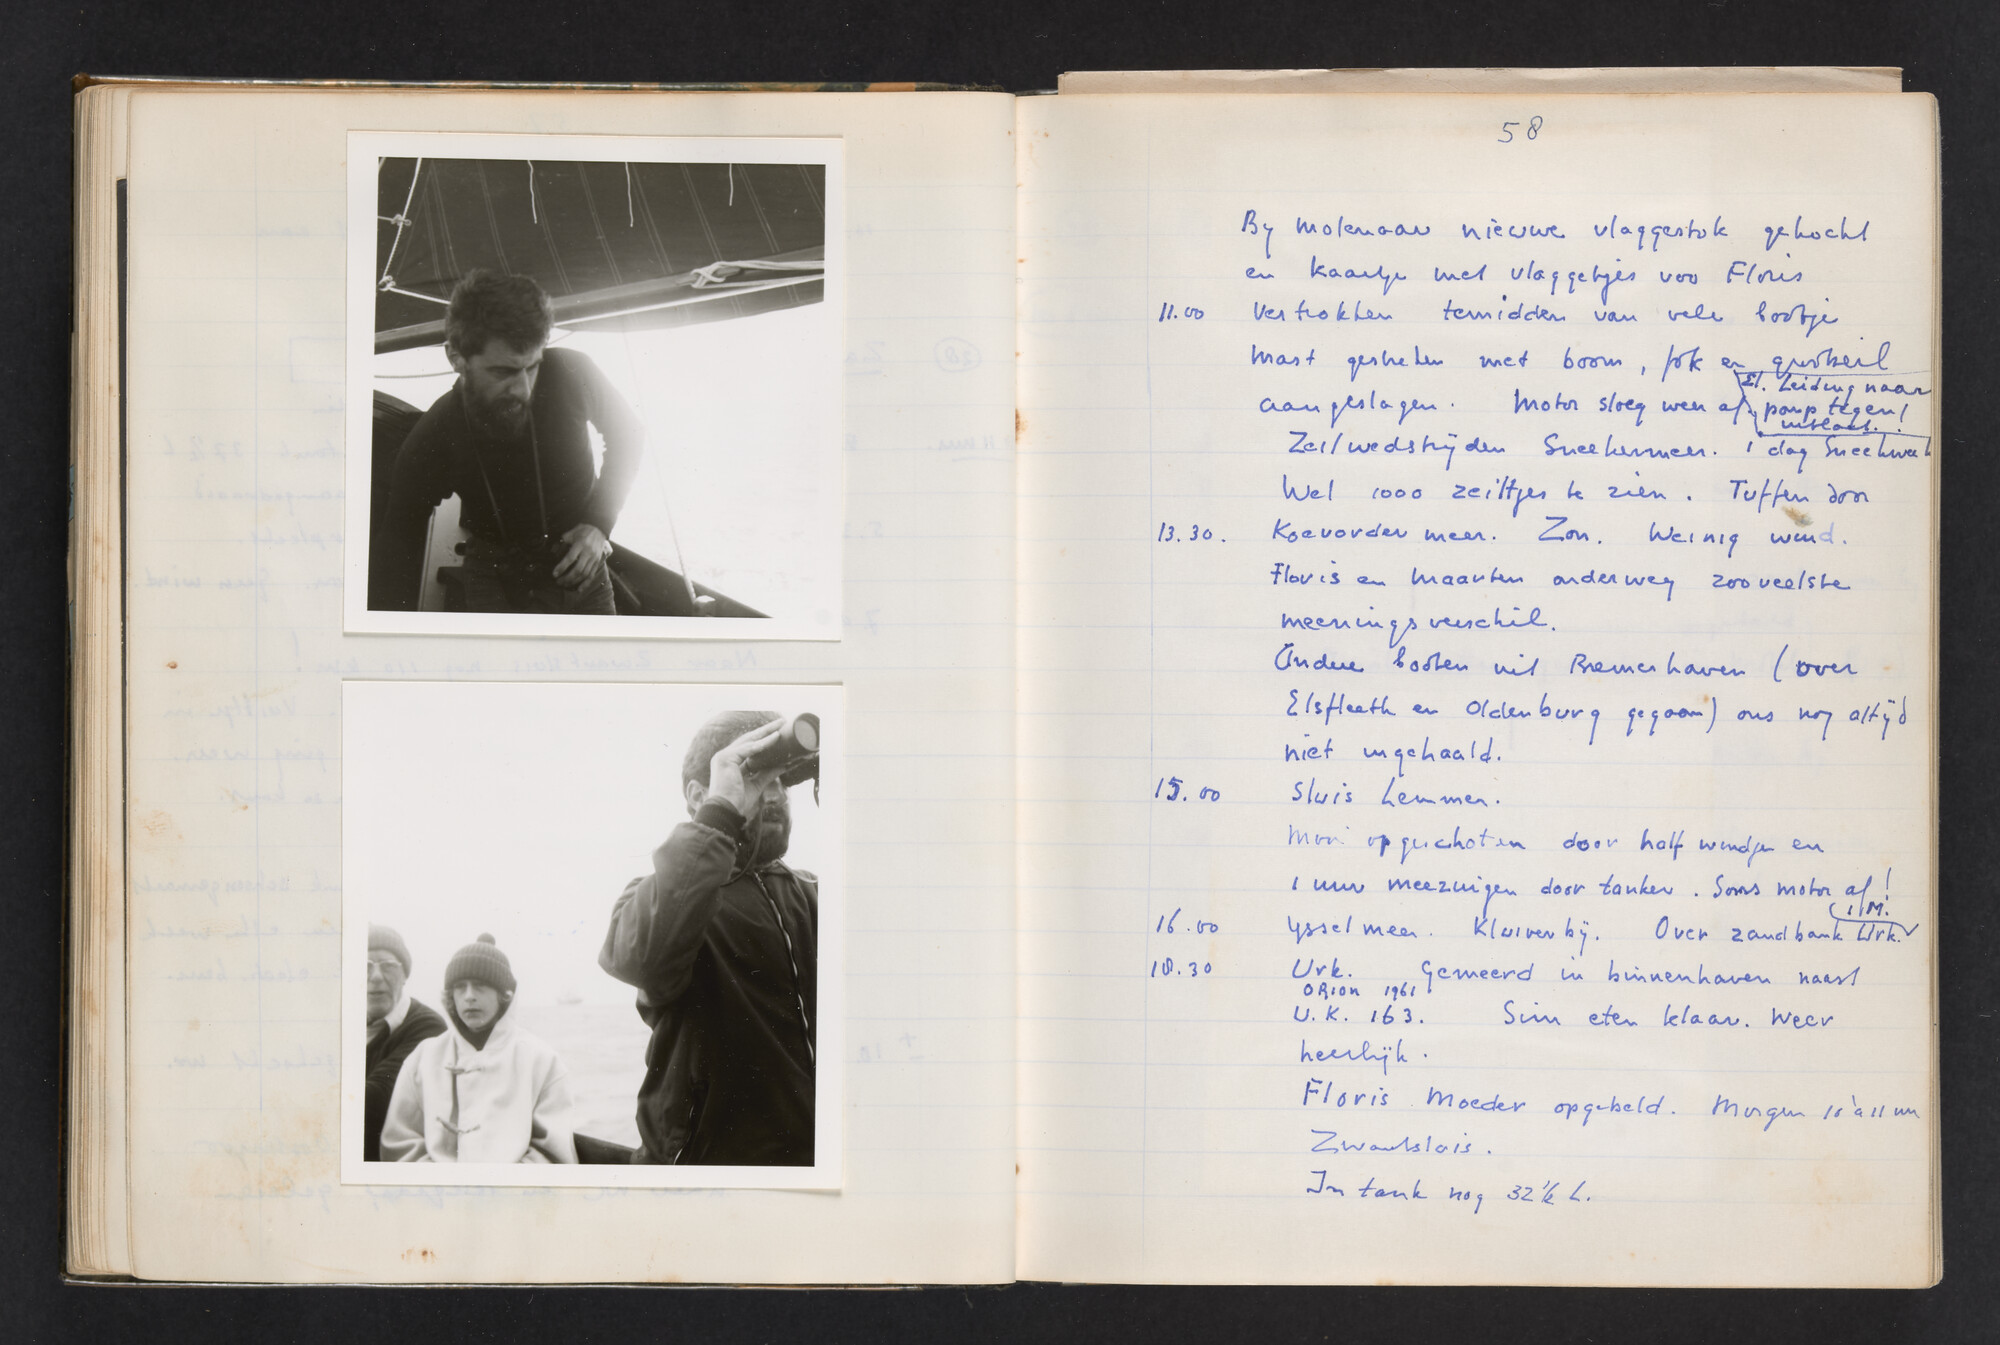 58
By molenaar nieuwe vlaggestok gekocht
en kaartje met vlaggetjes voo Floris
11.00 Vertrokken temidden van vele bootje
Mast gestreken met boom, fok en grootzeil
El. Leiding naar
aangeslagen. Motor sloeg weer af. pomp tegen!
uitlaat.
Zeilwedstrijden Sneekermeer. 1e dag Sneekweek
Wel 1000 zeiltjes te zien. Tuffen door
13.30. Koevorder meer. Zon. Weinig wind.
Floris en Maarten onderweg zooveelste
meeningsverschil.
Andere booten uit Bremerhaven (over
Elsfleeth en Oldenburg gegaan) ons nog altijd
niet ingehaald.
15.00 Sluis Lemmer.
Mooi opgeschoten door half windje en
1 uur meezuigen door tanker. Soms motor af!
1 M.
16.00 Ysselmeer. Kluiver bij. Over zandbank Urk.
18.30 Urk. Gemeerd in binnenhaven naast
ORION 1961
U.K. 163. Siem eten klaar. Weer
heerlijk.
Floris Moeder opgebeld. Morgen 10 à 11 uur
Zwartsluis.
In tank nog 32½ L.